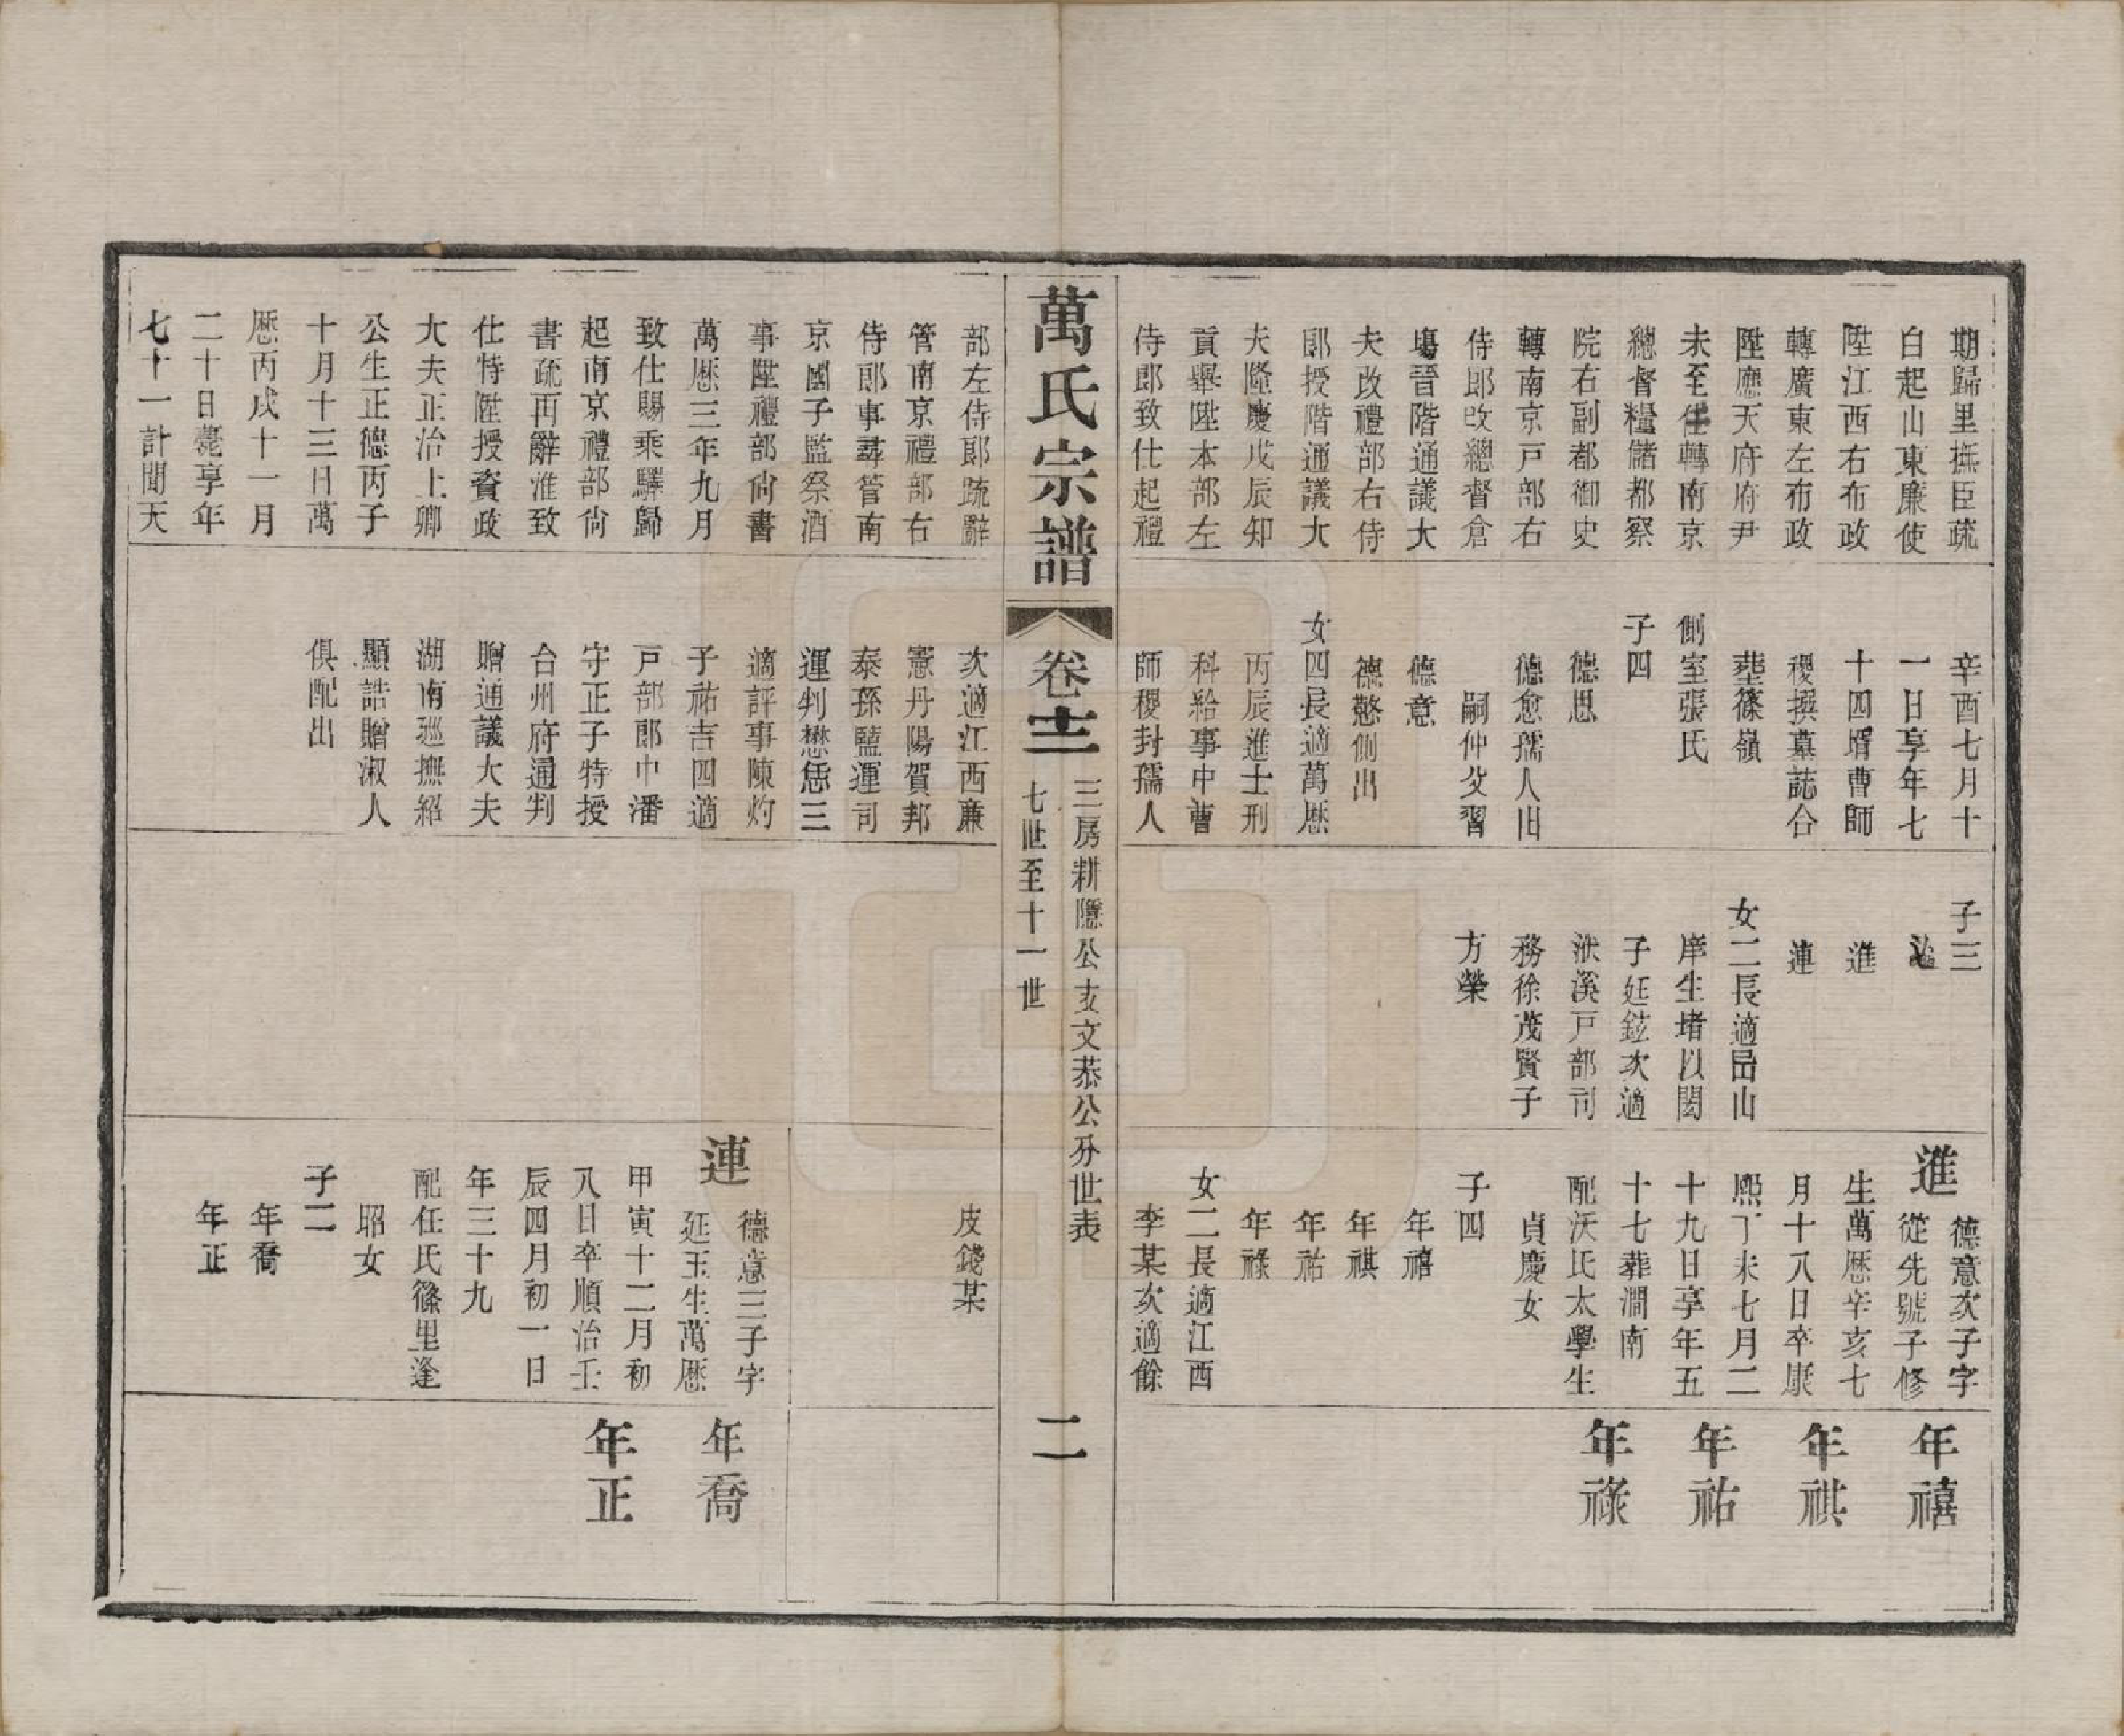 期歸里撫臣疏
白起山東廉使
陞江西右布政
轉廣東左布政
陞應天府府尹
未至任轉南京
總督糧儲都察
院右副都御史
轉南京戸部右
侍郎改總督倉
塲晉階通議大
夫改禮部右侍
郎授階通議大
夫隆慶戊辰知
貢舉陞本部左
侍郎致仕起禮
辛酉七月十
一日享年七
十四壻曹師
稷撰墓誌合
塟篠嶺
側室張氏
子四
德思
德愈孺人出
嗣仲父習
德意
德憼側出
女四長適萬厯
丙辰進士刑
科給事中曹
師稷封孺人
子三
進
連
女二長適邑山
庠生堵以閎
子延鉉次適
洑溪戸部司
務徐茂賢子
方榮
進
德意次子字
從先號子修
生萬厯辛亥七
月十八日卒康
熙丁未七月二
十九日享年五
十七葬澗南
配沃氏太學生
貞慶女
子四
年禧
年祺
年祐
年祿
女二長適江西
李某次適餘
年禧
年祺
年祐
年祿
萬氏宗譜
卷十二
三房耕隱公支文恭公分世表
七世至十一世
二
部左侍郎疏辭
管南京禮部右
侍郎事尋管南
京國子監祭酒
事陞禮部尙書
萬厯三年九月
致仕賜乘驛歸
起南京禮部尙
書疏再辭准致
仕特陞授資政
大夫正治上卿
公生正德丙子
十月十三日萬
厯丙戌十一月
二十日薨享年
七十一訃聞天
次適江西廉
憲丹陽賀邦
泰孫鹽運司
運判懋恁三
適評事陳灼
子祐吉四適
戸部郎中潘
守正子特授
台州府通判
贈通議大夫
湖南廵撫紹
顯誥贈淑人
俱配出
皮錢某
連
德意三子字
延玉生萬厯
甲寅十二月初
八日卒順治壬
辰四月初一日
年三十九
配任氏篠里逢
昭女
子二
年喬
年正
年喬
年正